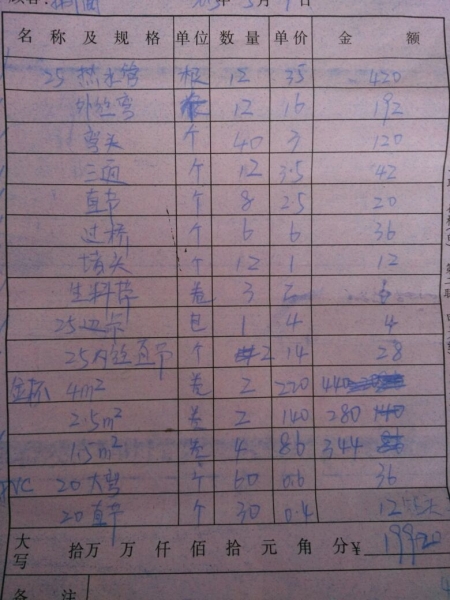 年 5 月 日
名 称 及 规 格 单位 数 量 单价 金 额
25 热水管 根 12 35 420
外丝弯 12 16 192
弯头 个 40 3 120
三通 个 12 3.5 42
直节 个 8 2.5 20
过桥 个 6 6 36
堵头 个 12 1 12
生料带 卷 3 2 6
25 卡 包 1 4 4
25内丝直节 个 2 14 28
金杯 4m² 卷 2 220 440
2.5m² 卷 2 140 280
1.5m² 卷 4 86 344
PVC 20大弯 个 60 0.6 36
20直节 个 30 0.4 12
大写 拾万 万 仟 佰 拾 元 角 分¥ 19920
备 注